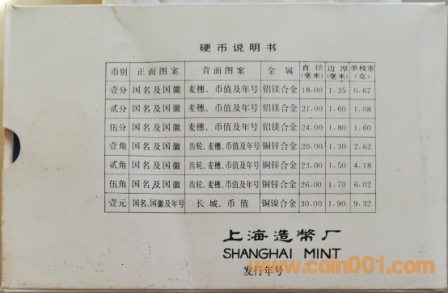 硬币说明书
币别 正面图案 背面图案 金属 直径(毫米) 边厚(毫米) 单枚重(克)
壹分 国名及国徽 麦穗、币值及年号 铝镁合金 18.00 1.35 0.67
贰分 国名及国徽 麦穗、币值及年号 铝镁合金 21.00 1.60 1.08
伍分 国名及国徽 麦穗、币值及年号 铝镁合金 24.00 1.80 1.60
壹角 国名及国徽 齿轮、麦穗、币值及年号 铜锌合金 20.00 1.30 2.62
贰角 国名及国徽 齿轮、麦穗、币值及年号 铜锌合金 23.00 1.50 4.18
伍角 国名及国徽 齿轮、麦穗、币值及年号 铜锌合金 26.00 1.70 6.02
壹元 国名,国徽及年号 长城、币值 铜镍合金 30.00 1.90 9.32
上海造幣厂
SHANGHAI MINT
发行年号
www.coin001.com